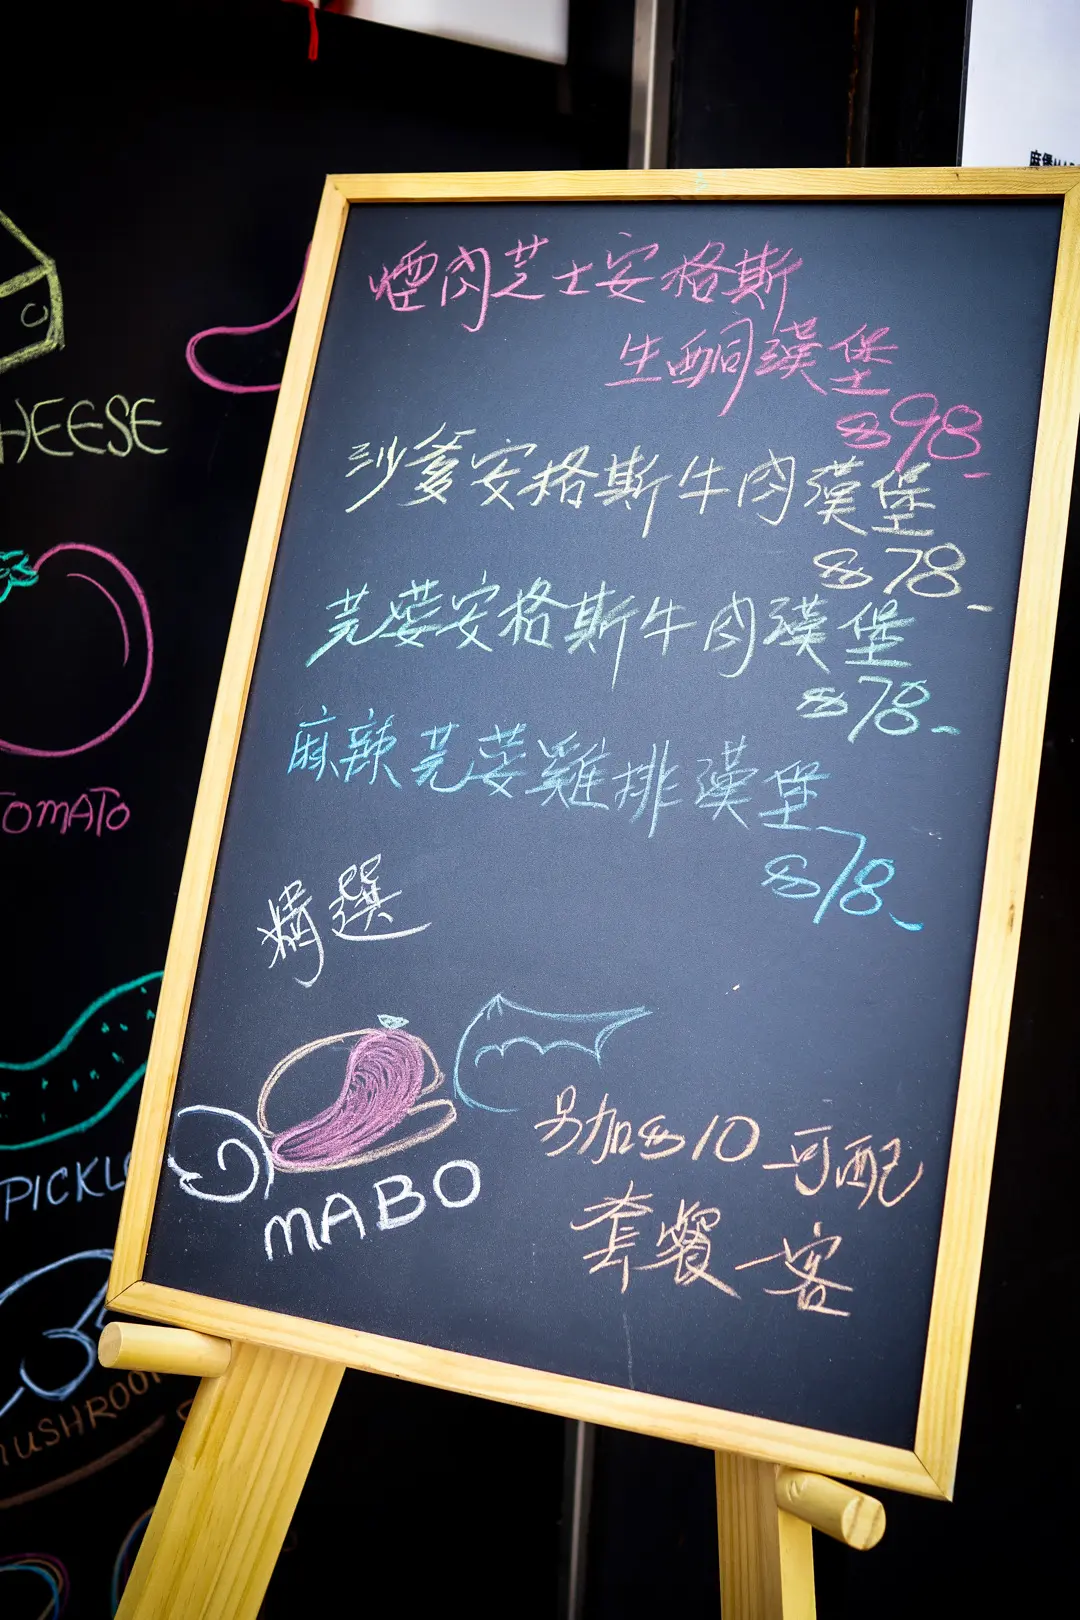 煙肉芝士安格斯
生酮漢堡
$98-
沙爹安格斯牛肉漢堡
$78-
芫荽安格斯牛肉漢堡
$78-
麻辣芫荽雞排漢堡
$78-
精選
MABO
另加$10 可配
套餐一客
HEESE
TOMATO
PICKL
MUSHROO